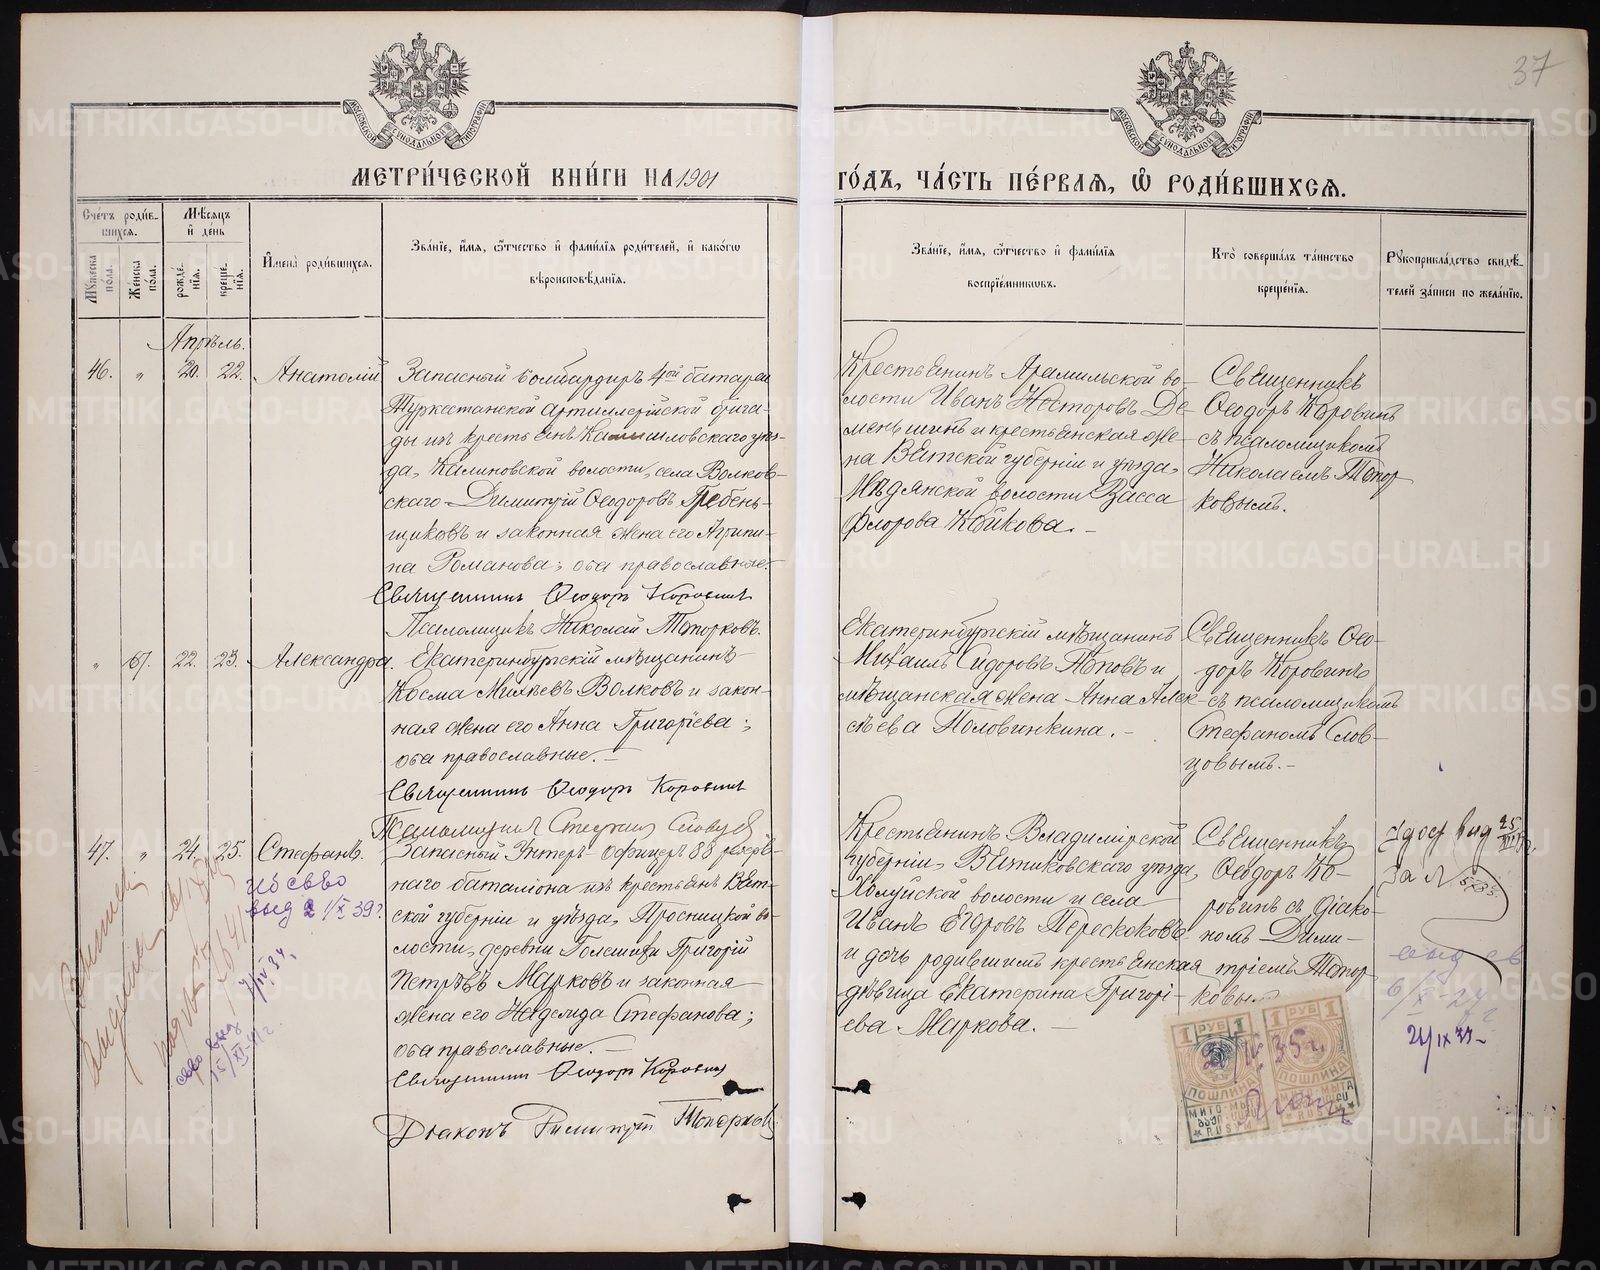 37
МОСКОВСКОЙ СѴНОДАЛЬНОЙ ТИПОГРАФІИ
МОСКОВСКОЙ СѴНОДАЛЬНОЙ ТИПОГРАФІИ
МЕТРИ́ЧЕСКОЙ КНИ́ГИ НА 1901
ГО́ДЪ, ЧА́СТЬ ПЕ́РВАѦ, Ѽ РОДИ́ВШИХСѦ.
Сче́тъ роди́в-
шихсѧ.
Мѣ́сѧцъ
и҆ де́нь
Мꙋ́жеска
по́ла.
Же́нска
по́ла.
рожде́-
нїѧ.
креще́-
нїѧ.
И҆мена̀ роди́вшихсѧ.
Зва́нїе, и҆́мѧ, ѻ҆́тчество и҆ фами́лїѧ роди́телей, и҆ како́гѡ
вѣроисповѣ́данїѧ.
Зва́нїе, и҆́мѧ, ѻ҆́тчество и҆ фами́лїѧ
воспрїе́мникѡвъ.
Кто̀ соверша́лъ та́инство
креще́нїѧ.
Рꙋкоприкла́дство свидѣ́-
телей за́писи по жела́нїю.
Апрѣль.
46. „ 20. 22. Анатолій
Запасный бомбардиръ 4ой батареи
Туркестанской артиллерійской брига-
ды изъ крестьянъ Камышловскаго уѣз-
да, Калиновской волости, села Волков-
скаго Димитрій Ѳеодоровъ Гребень-
щиковъ и законная жена его Агрипи-
на Романова; оба православные.
Священникъ Ѳеодоръ Коровинъ
Псаломщикъ Николай Топорковъ.
Крестьянинъ Арамильской во-
лости Иванъ Несторовъ Де-
меньшинъ и крестьянская же-
на Вятской губерніи и уѣзда,
Мѣдянской волости Васса
Флорова Койкова. –
Священникъ
Ѳеодоръ Коровинъ
съ псаломщикомъ
Николаемъ Топор
ковымъ.
„ 67. 22. 23. Александра.
Екатеринбургскій мѣщанинъ
Косма Михѣевъ Волковъ и закон-
ная жена его Анна Григорьева;
оба православные. –
Священникъ Ѳеодоръ Коровинъ
Псаломщикъ Стефанъ Словцовъ
Екатеринбургскій мѣщанинъ
Михаилъ Сидоровъ Поповъ и
мѣщанская жена Анна Алек-
сѣева Половинкина. –
Священникъ Ѳео-
доръ Коровинъ
съ псаломщикомъ
Стефаномъ Слов-
цовымъ. –
47. „ 24. 25. Стефанъ.
Запасный Унтеръ-офицеръ 88 резерв-
наго баталіона изъ крестьянъ Вят-
ской губерніи и уѣзда, Просницкой во-
лости, деревни Григорій
Петровъ Марковъ и законная
жена его Надежда Стефанова;
оба православные. –
Священникъ Ѳеодоръ Коровинъ
Діаконъ Димитрій Топорковъ
Крестьянинъ Владимірской
губерніи, Вязниковскаго уѣзда,
Холуйской волости и села
Иванъ Егоровъ Перескоковъ
и дочь родившихъ крестьянская
дѣвица Екатерина Григорі-
ева Маркова. –
Священникъ
Ѳеодоръ Ко-
ровинъ съ діако-
номъ Дими-
тріемъ Топор-
ковы
выд 2/X 39г.
7/IV 34
15/XI-41г.
Удост выд 25
за №
выд св
6/X - 24
24 IX 33
1 РУБ 1
1 РУБ 1
ПОШЛИНА
ПОШЛИНА
35г.